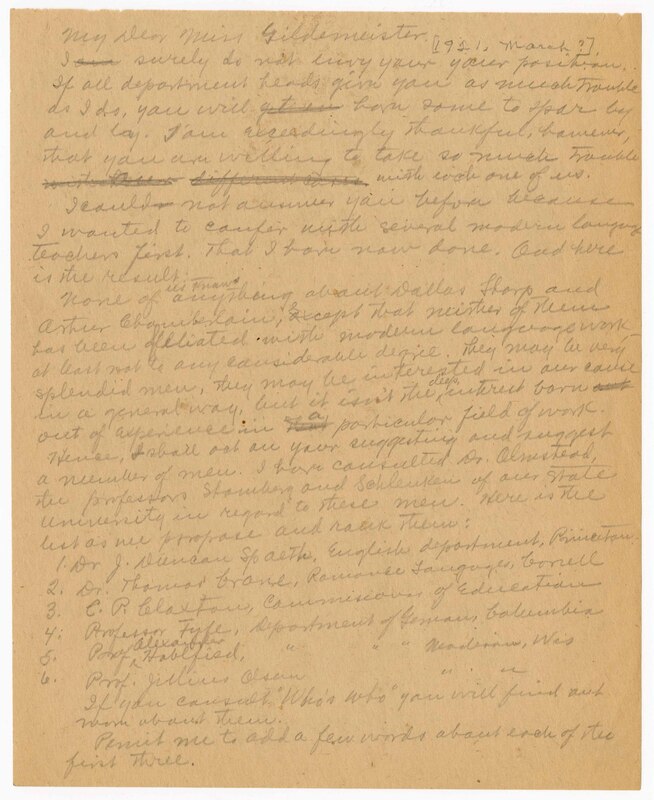 My Dear Miss Gildemeister,
[1921, March?].
I surely do not envy your your position.
If all department heads give you as much trouble
as I do, you will have some to spar by
and by. I am exceedingly thankful, however,
that you are willing to take so much trouble
with each one of us.
I could not answer you before because
I wanted to confer with several modern language
teachers first. That I have now done. And here
is the result:
None of us knows anything about Dallas Sharp and
Arthur Chamberlain, except that neither of them
has been affiliated with modern language work
at least not to any considerable degree. They may be very
splendid men, they may be interested in our cause
in a general way, but it isn't the deep interest born
out of experience in a particular field of work.
Hence, I shall act on your suggestion and suggest
a number of men. I have consulted Dr. Olmstead,
the professors Stomberg and Schlenker of our State
University in regard to these men. Here is the
list as we propose and rank them:
1. Dr. J. Duncan Spaeth, English department, Princeton.
2. Dr. Thomas Crane, Romance Languages, Cornell
3. C. P. Claxton, Commissioner of Education
4. Professor Fyfe, Department of German, Columbia
5. Prof. Alexander Hohlfeld, " " " Madison, Wis
6. Prof. Julius Olson " " "
If you consult "Who's Who" you will find out
more about them.
Permit me to add a few words about each of the
first three.